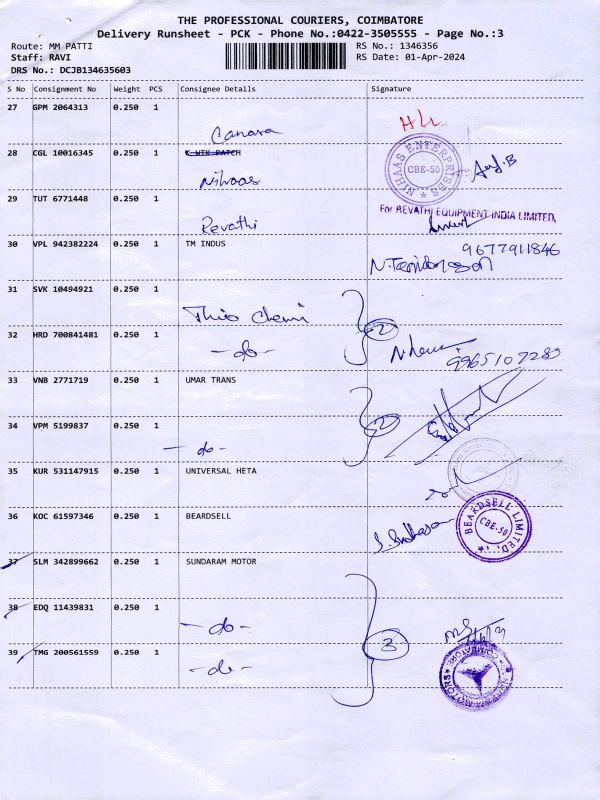 THE PROFESSIONAL COURIERS, COIMBATORE
Delivery Runsheet - PCK - Phone No.:0422-3505555 - Page No.:3
Route: MM PATTI
RS No.: 1346356
Staff: RAVI
RS Date: 01-Apr-2024
DRS No.: DCJB134635603
S No Consignment No Weight PCS Consignee Details Signature
27 GPM 2064313 0.250 1
Canara
28 CGL 10016345 0.250 1 K WIK PATCH
Nihaas
NIHAAS ENTERPRISES
CBE-50
29 TUT 6771448 0.250 1
Revathi
For REVATHI EQUIPMENT INDIA LIMITED,
30 VPL 942382224 0.250 1 TM INDUS
9677911846
31 SVK 10494921 0.250 1
Thio Chemi
2
32 HRD 700841481 0.250 1
- do -
9965107289
33 VNB 2771719 0.250 1 UMAR TRANS
2
34 VPM 5199837 0.250 1
- do -
35 KUR 531147915 0.250 1 UNIVERSAL HETA
36 KOC 61597346 0.250 1 BEARDSELL
BEARDSELL LIMITED,
CBE-50
37 SLM 342899662 0.250 1 SUNDARAM MOTOR
38 EDQ 11439831 0.250 1
- do -
3
39 TMG 200561559 0.250 1
- do -
MOTORS